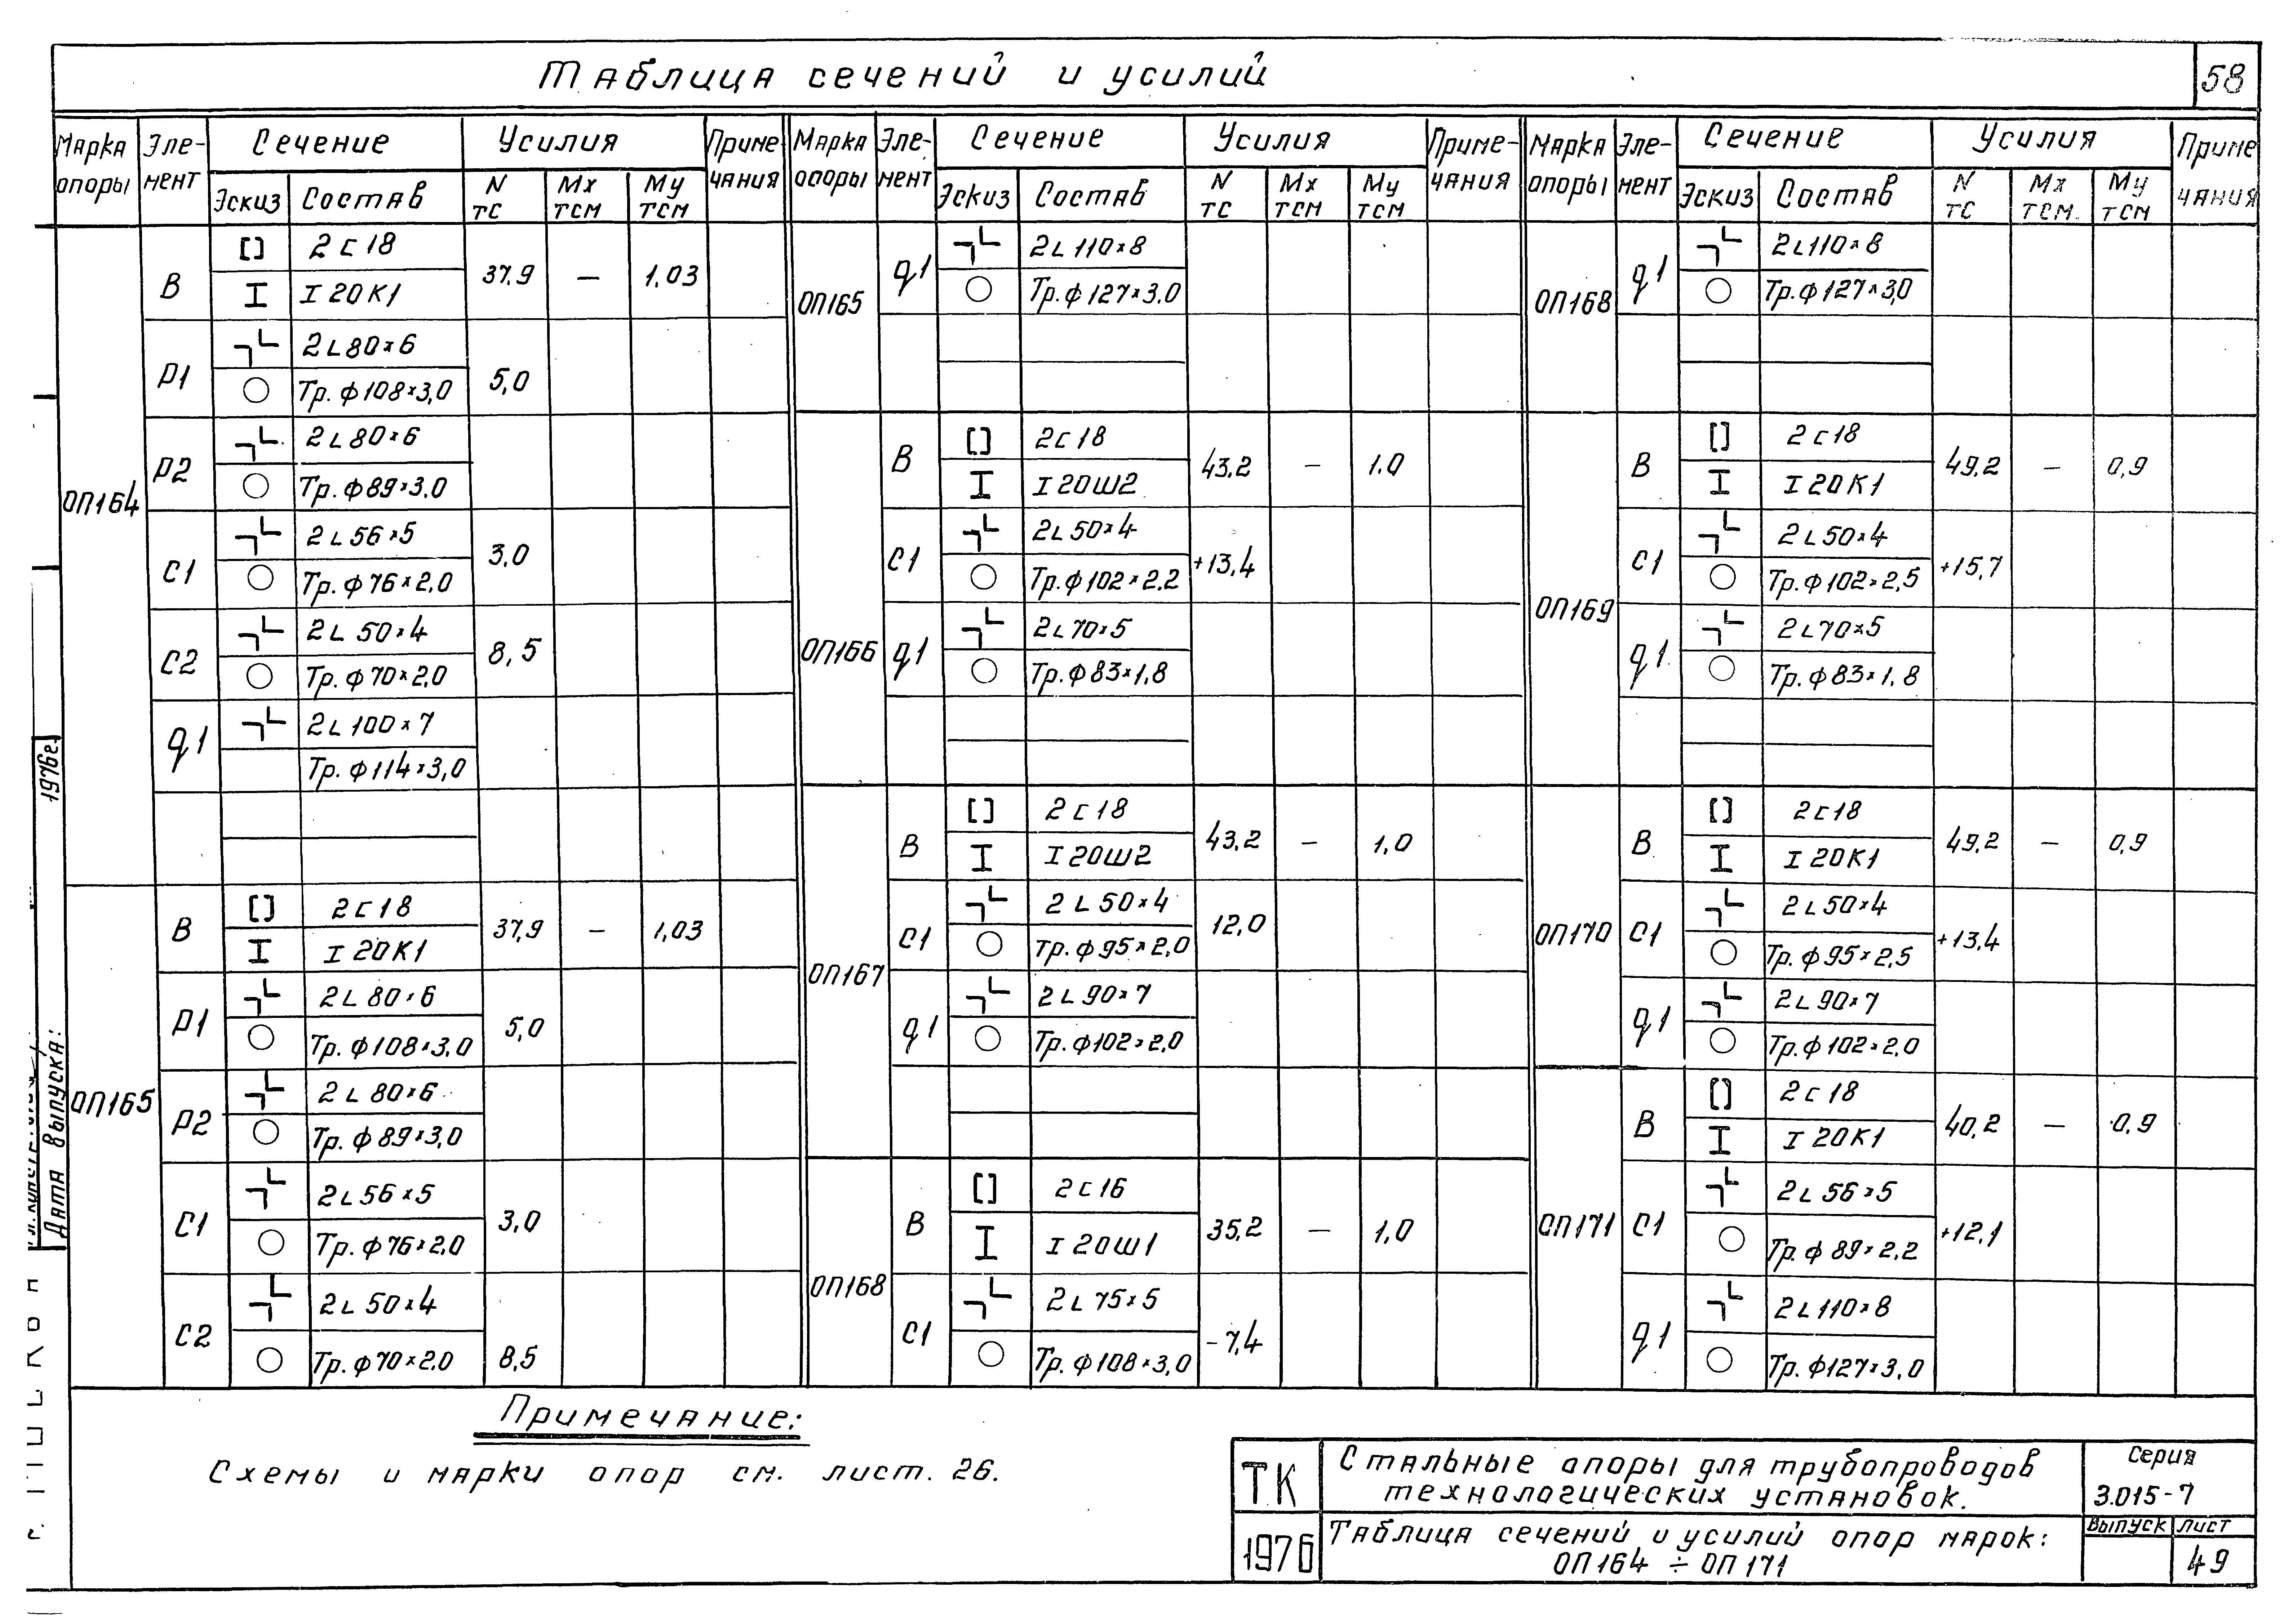 Таблица сечений и усилий
58
Марка опоры | Элемент | Сечение | Усилия | Примечания | Марка опоры | Элемент | Сечение | Усилия | Примечания | Марка опоры | Элемент | Сечение | Усилия | Примечания
Эскиз | Состав | N тс | Мх тсм | Му тсм | Эскиз | Состав | N тс | Мх тсм | Му тсм | Эскиз | Состав | N тс | Мх тсм | Му тсм
ОП164
В | [] 2 С 18 | 37,9 | – | 1,03
I I 20К1
Р1 | 2L80×6 | 5,0
○ Тр.ф108×3,0
Р2 | 2L80×6
○ Тр.ф89×3,0
С1 | 2L56×5 | 3,0
○ Тр.ф76×2,0
С2 | 2L 50×4 | 8,5
○ Тр.ф70×2,0
q1 | 2L100×7
Тр.ф114×3,0
ОП165
В | [] 2С18 | 37,9 | – | 1,03
I I 20К1
Р1 | 2L80×6 | 5,0
○ Тр.ф108×3,0
Р2 | 2L 80×6
○ Тр.ф89×3,0
С1 | 2L56×5 | 3,0
○ Тр.ф76×2,0
С2 | 2L50×4
○ Тр.ф70×2,0 | 8,5
ОП165
q1 | 2L110×8
○ Тр.ф127×3,0
ОП166
В | [] 2С18 | 43,2 | – | 1,0
I I 20Ш2
С1 | 2L50×4 | +13,4
○ Тр.ф102×2,2
q1 | 2L70×5
○ Тр.ф83×1,8
ОП167
В | [] 2С18 | 43,2 | – | 1,0
I I 20Ш2
С1 | 2L50×4 | 12,0
○ Тр.ф95×2,0
q1 | 2L90×7
○ Тр.ф102×2,0
ОП168
В | [] 2С16 | 35,2 | – | 1,0
I I 20Ш1
С1 | 2L75×5 | -7,4
○ Тр.ф108×3,0
ОП168
q1 | 2L110×8
○ Тр.ф127×3,0
ОП169
В | [] 2С18 | 49,2 | – | 0,9
I I 20К1
С1 | 2L50×4 | +15,7
○ Тр.ф102×2,5
q1 | 2L70×5
○ Тр.ф83×1,8
ОП170
В | [] 2С18 | 49,2 | – | 0,9
I I 20К1
С1 | 2L50×4 | +13,4
○ Тр.ф95×2,5
q1 | 2L90×7
○ Тр.ф102×2,0
ОП171
В | [] 2С18 | 40,2 | – | 0,9
I I 20К1
С1 | 2L56×5 | +12,1
○ Тр.ф 89×2,2
q1 | 2L110×8
○ Тр.ф127×3,0
Примечание:
Схемы и марки опор см. лист. 26.
ТК
1976
Стальные опоры для трубопроводов
технологических установок.
Таблица сечений и усилий опор марок:
ОП164 ÷ ОП171
Серия
3.015-7
Выпуск
Лист
49
Дата выпуска: 1976г.